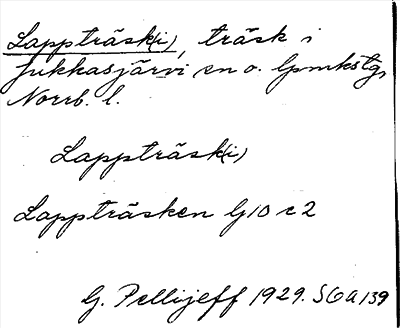 Lappträsk(i), träsk i
Jukkasjärvi sn o. lpmkstg,
Norrb. l.
Lappträsk(i)
Lappträsken G10 c2
G. Pellijeff 1929. SOA 139